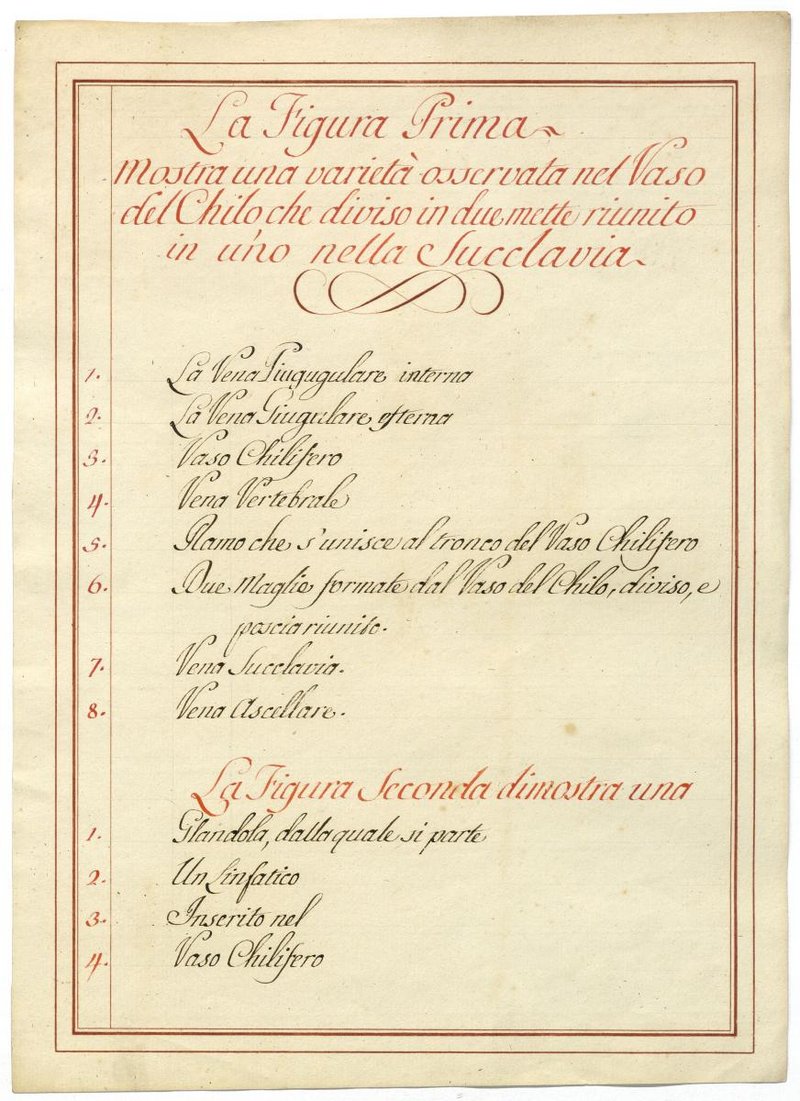 La Figura Prima
mostra una varietà osservata nel Vaso
del Chilo che diviso in due mette riunito
in uno nella Succlavia
1. La Vena Giugugulare interna
2. La Vena Giugulare esterna
3. Vaso Chilifero
4. Vena Vertebrale
5. Ramo che s'unisce al tronco del Vaso Chilifero
6. Due Maglie formate dal Vaso del Chilo, diviso, e
poscia riunito.
7. Vena Succlavia.
8. Vena Ascellare.
La Figura Seconda dimostra una
1. Glandola, dalla quale si parte
2. Un Linfatico
3. Inserito nel
4. Vaso Chilifero